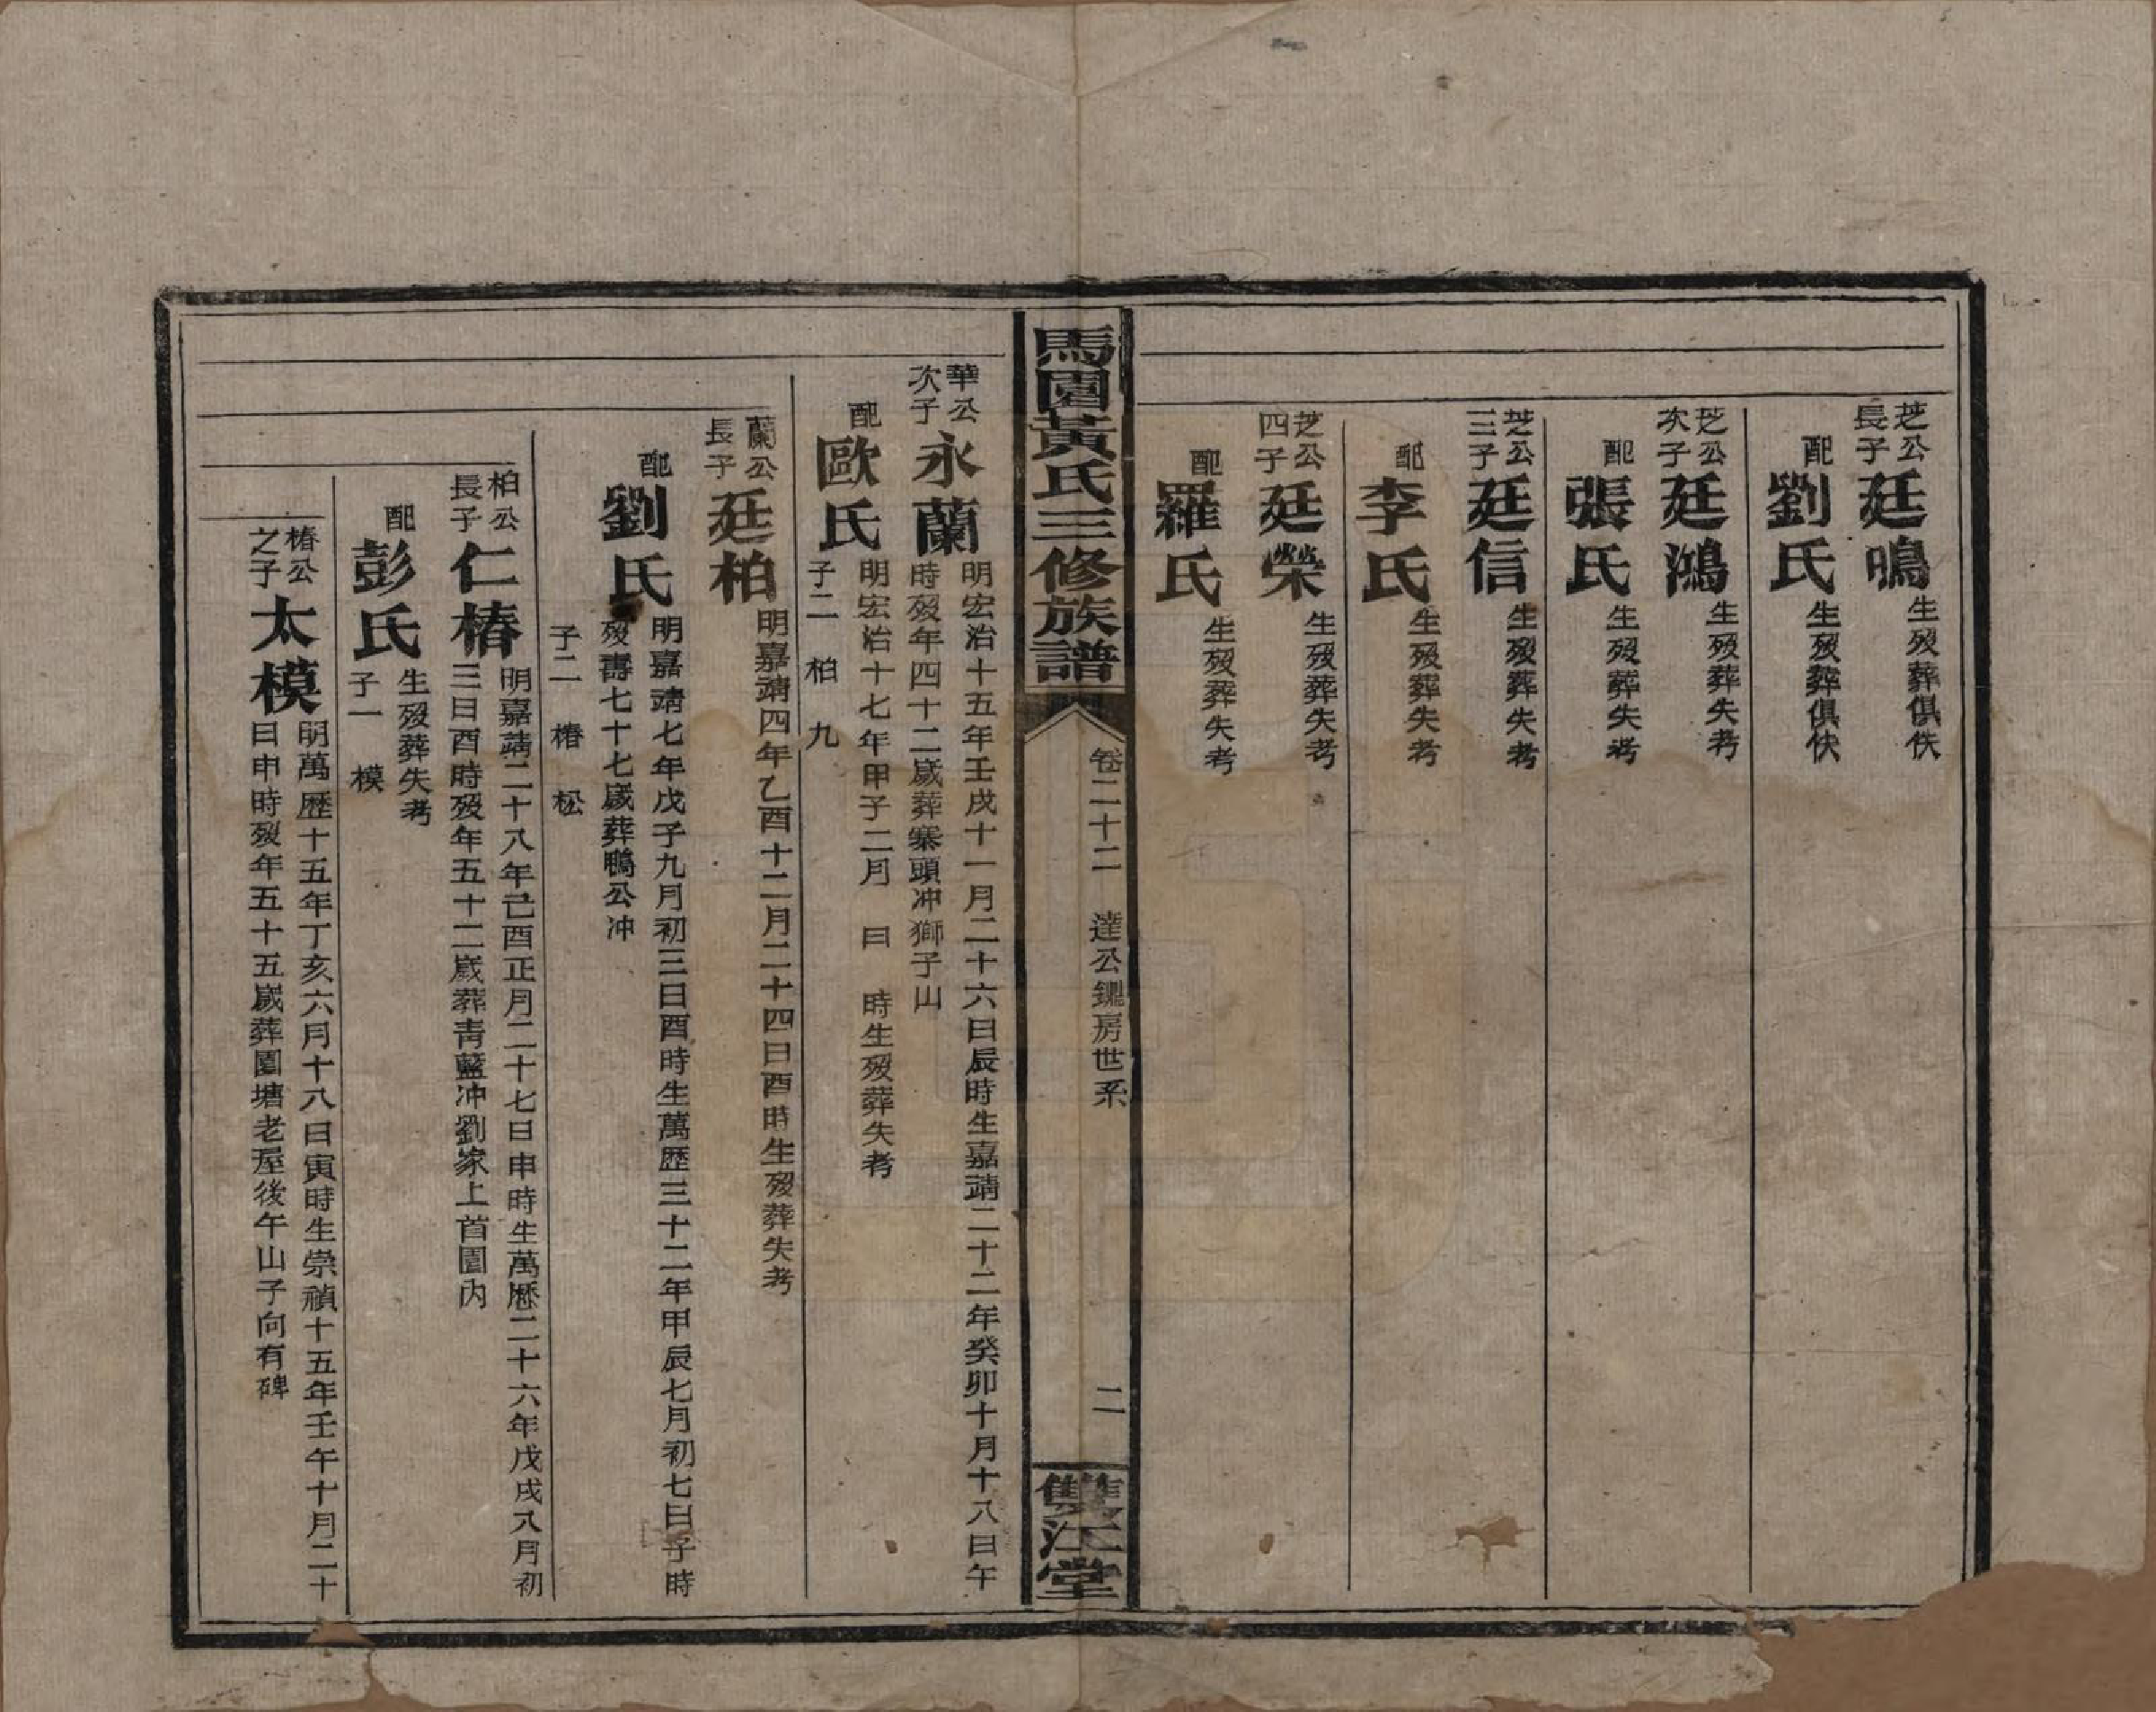 芝公
長子
廷鳴
生歿葬俱佚
配
劉氏
生歿葬俱佚
芝公
次子
廷鴻
生歿葬失考
配
張氏
生歿葬失考
芝公
三子
廷信
生歿葬失考
配
李氏
生歿葬失考
芝公
四子
廷榮
生歿葬失考
配
羅氏
生歿葬失考
馬園黃氏三修族譜
卷二十二 達公鑑房世系
二
雙江堂
華公
次子
永蘭
明宏治十五年壬戌十一月二十六日辰時生嘉靖二十二年癸卯十月十八日午
時歿年四十二歲葬寨頭冲獅子山
配
歐氏
明宏治十七年甲子二月 日 時生歿葬失考
子二 柏 九
蘭公
長子
廷柏
明嘉靖四年乙酉十二月二十四日酉時生歿葬失考
配
劉氏
明嘉靖七年戊子九月初三日酉時生萬歷三十二年甲辰七月初七日子時
歿壽七十七歲葬鴨公冲
子二 椿 松
柏公
長子
仁椿
明嘉靖二十八年己酉正月二十七日申時生萬歷二十六年戊戌八月初
三日酉時歿年五十二歲葬青藍冲劉家上首園內
配
彭氏
生歿葬失考
子一 模
椿公
之子
太模
明萬歷十五年丁亥六月十八日寅時生崇禎十五年壬午十月二十
日申時歿年五十五歲葬園塘老屋後午山子向有碑